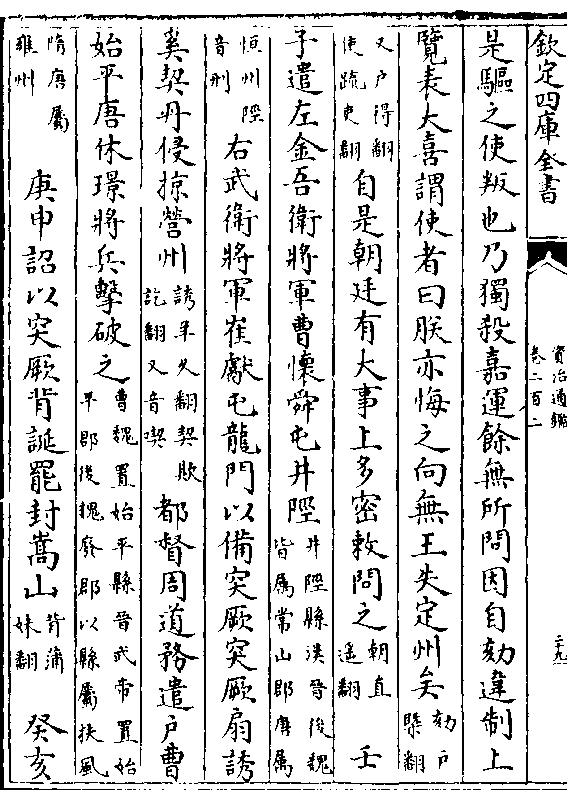 欽定四庫全書
資治通鑑
卷二百二
二十九
是驅之使叛也乃獨殺嘉運餘無所問因自劾違制上
覽表大喜謂使者曰朕亦悔之向無王失定州矣劾戶槩翻
又戶得翻使疏吏翻自是朝廷有大事上多密敕問之朝直遥翻壬
子遣左金吾衛將軍曹懷舜屯井陘井陘縣漢晉後魏皆屬常山郡唐屬
恒州陘音刑右武衛將軍崔獻屯龍門以備突厥突厥扇誘
奚契丹侵掠營州誘羊久翻契欺訖翻又音喫都督周道務遣戶曹
始平唐休璟將兵擊破之曹魏置始平縣晉武帝置始平郡後魏廢郡以縣屬扶風
隋唐屬雍州庚申詔以突厥背誕罷封嵩山背蒲妹翻癸亥